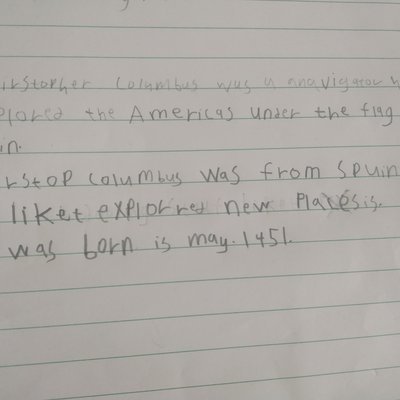 irstopher Columbus wus u anavigator w
plored the Americas under the flag
in.
rstop columbus was from spuin
liket explorred new Platesis.
was born is may. 1451.